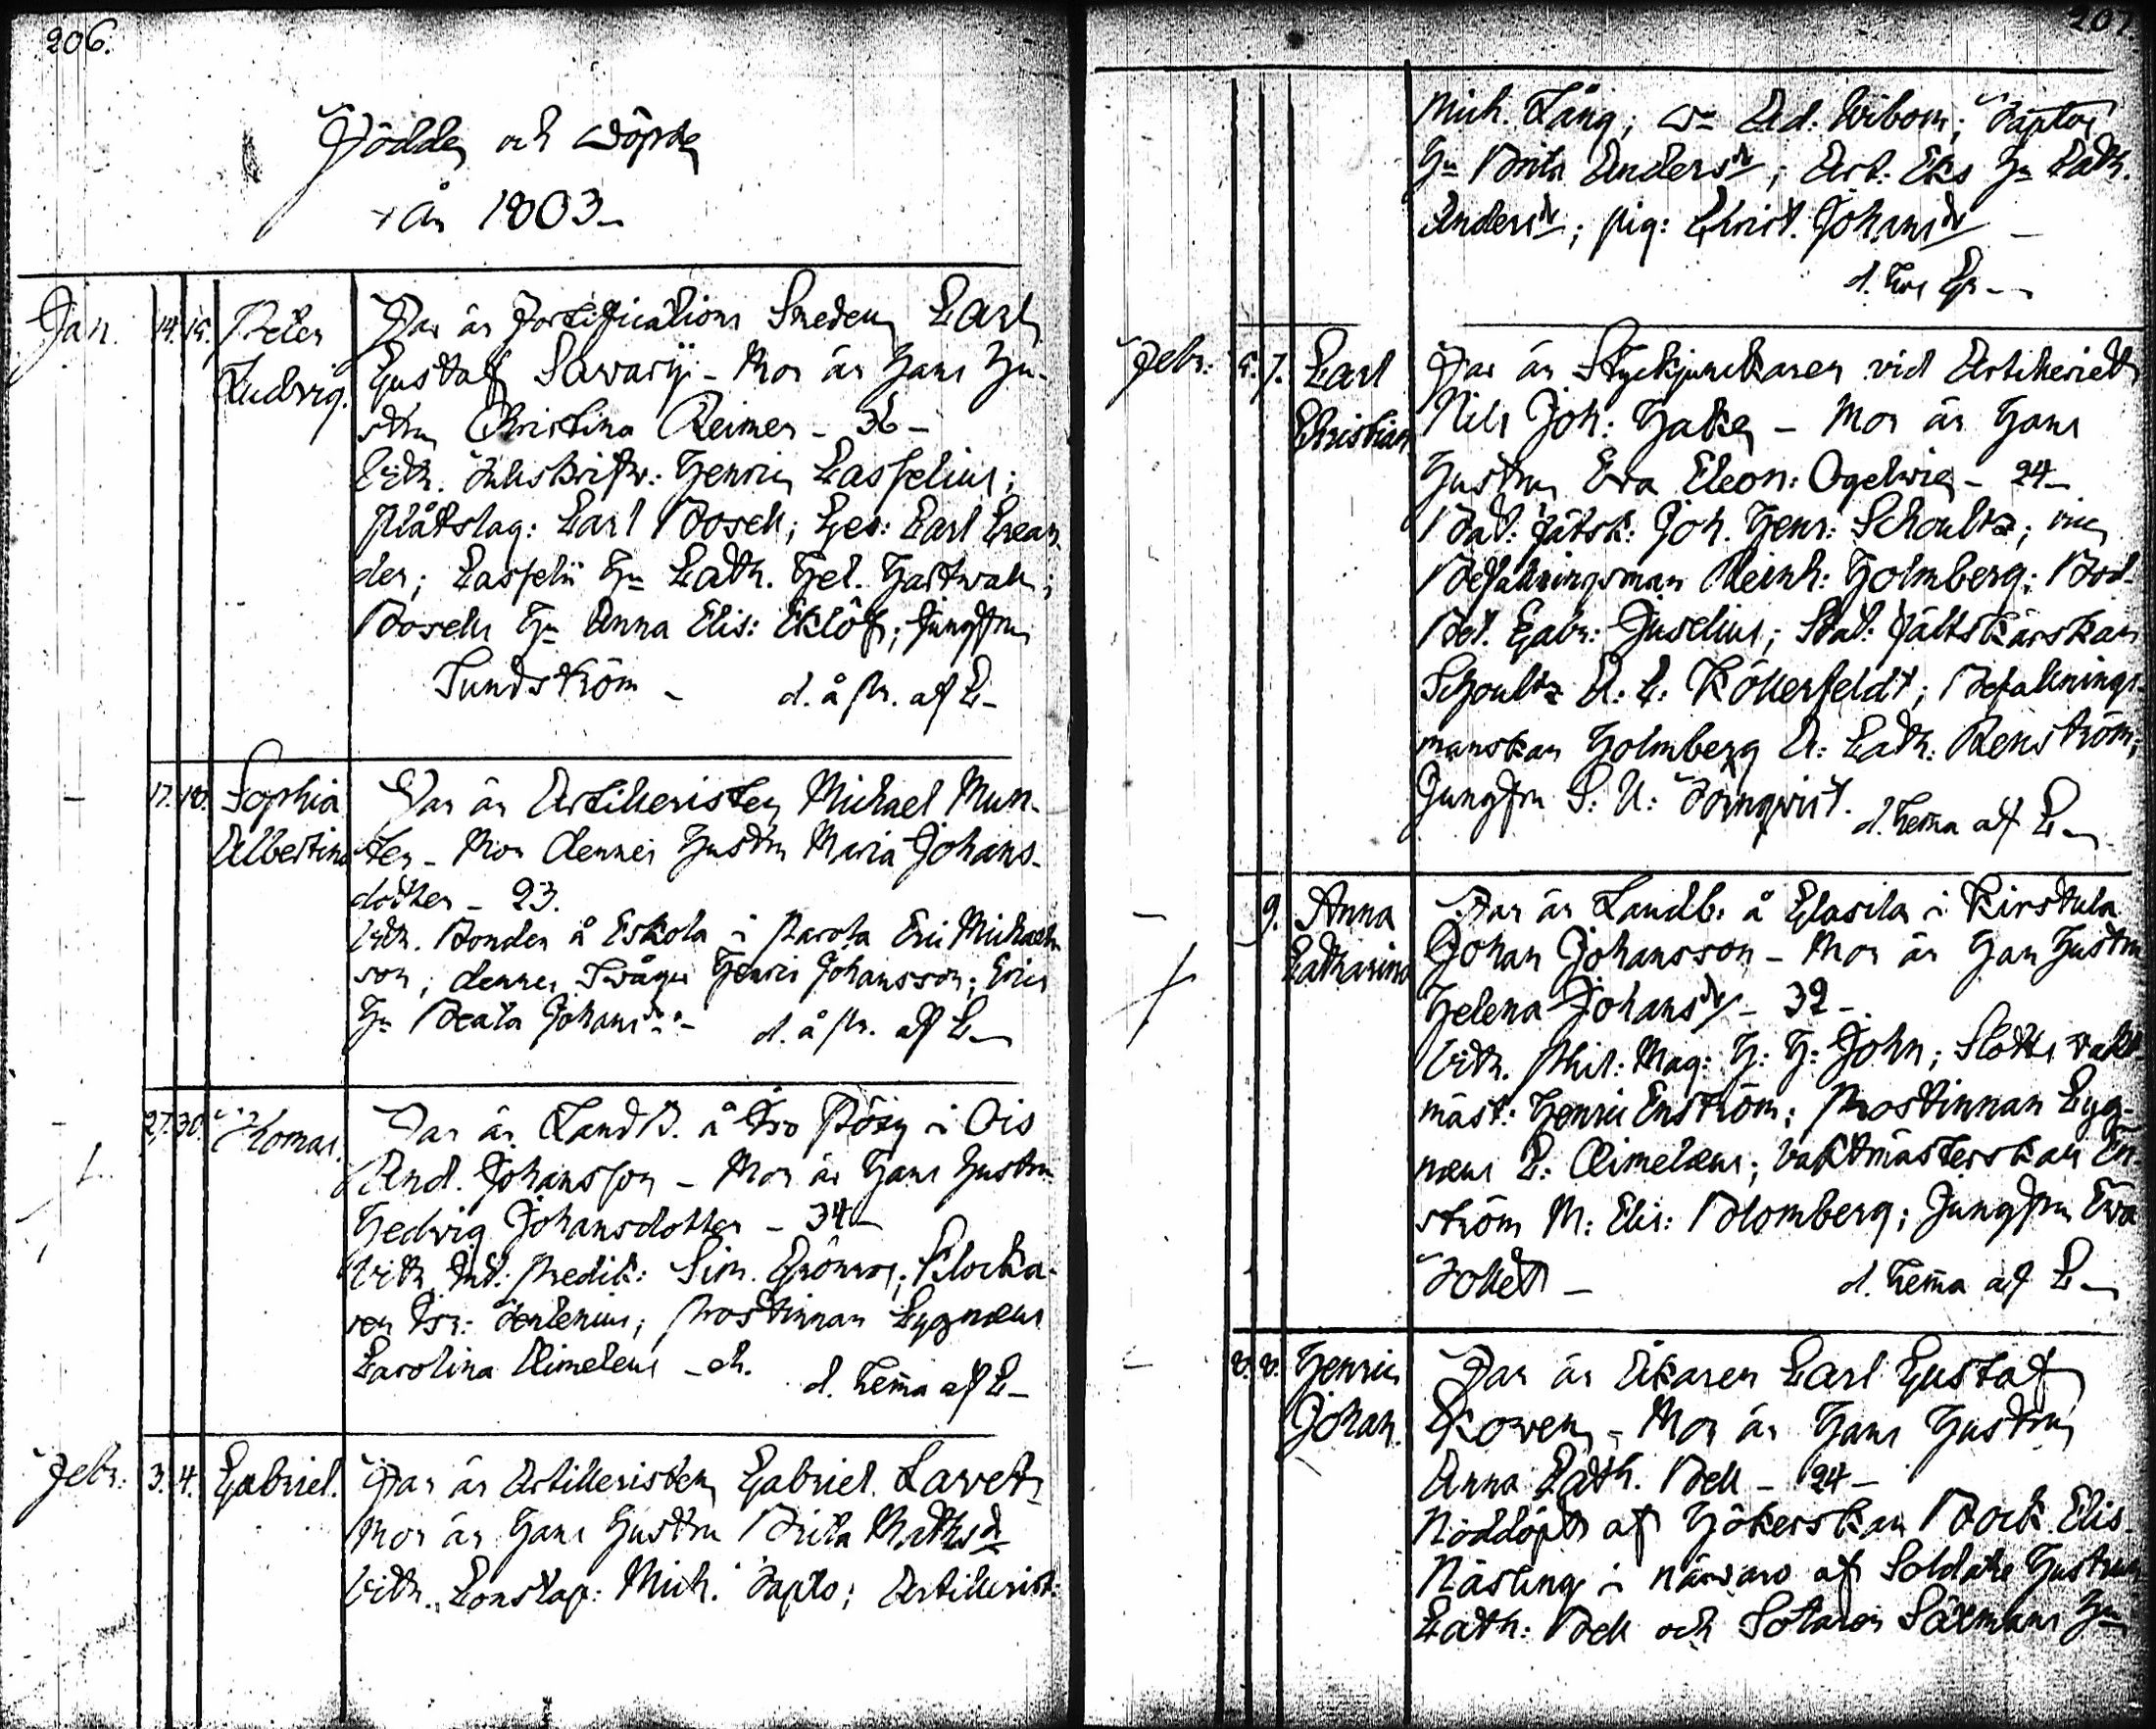 206.
Födde och döpte
År 1803
Jan. 14. 15. Peter Ludvig. Far är Fortifications Smeden Carl
Gustaf Savary - Mor är Hans Hu-
stru Christina Reimer - 36 -
Vitn. Henric Casselius;
Plåtslag: Carl Bosell; Ges: Carl Crean-
der; Casselii Hu Cath. Hel. Hartwall;
Bosells Hu Anna Elis: Eklöf; Jungfru
Sundström - d. å pr. af C-
17. 18. Sophia Albertina Far är Artilleristen Michael Mun-
ter - Mor dennes Hustru Maria Johans-
dotter - 23.
Vitn. Bonden å Eskola i Parola Eric Michaels-
son; dennes Swåger Henric Johansson; Erics
Hu Beata Johansdr - d. å pr. af C-
27. 30. Thomas. Far är Landb. å Iso Pöxy i Ois
And. Johansson - Mor är Hans Hustru
Hedvig Johansdotter - 34 -
Vitn. Predik: Sim. Grönroos; Klocka-
ren Isr: Penlenius; Prostinnan Cygnæus
Carolina Aimelæus - ch. d. hema af C-
Febr. 3. 4. Gabriel. Far är Artilleristen Gabriel Lavett
Mor är Hans Hustru Brita Mathsdr
Vitn. Constap: Mich. Tapto; Artillerist:
207
Mich. Lång; Ad: Wibom; Taptos
Hu Brita Andersdr; Art: Eks Hu Cath.
Andersdr; pig: Christ. Johansdr -
d. hos Gr -
Febr. 5. 7. Carl Christian Far är Styckjunkaren vid Artilleriet
Nils Joh: Hake - Mor är Hans
Hustru Eva Eleon: Ogelwie - 24 -
Bat: fältsk: Joh. Henr: Schoultz;
Befallningsman Reinh: Holmberg;
Gabr: Juselius; Bat: fältskärskan
Schoultz A: C: Köllerfeldt; Befallnings-
manskan Holmberg A: Cath: Renström;
Jungfru S: U: Törnqvist. d. hema af C-
9. Anna Catharina Far är Landb: å Clasila i Kirstula
Johan Johansson - Mor är Hans Hustru
Helena Johansdr - 32 -
Vitn. Phil: Mag: G: G: John; Slotts vakt
mäst: Henric Enström; Prostinnan Cyg-
næus C: Aimelæus; Vaktmästerskan En-
ström M: Elis: Blomberg; Jungfru Ewa
Tollet - d. hema af C-
8. 8. Henric Johan. Far är Åkaren Carl Gustaf
Kowen - Mor är Hans Hustru
Anna Cath. Bell - 24 -
Nöddöpt af Hökerskan Bock Elis.
Näsling i närvaro af Soldats Hustrun
Cath: Bell och Sotaren Säxmans Hu